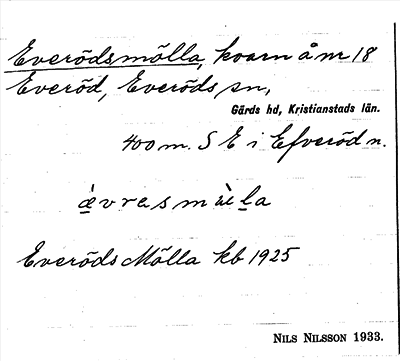 Everödsmölla, kvarn å nr 18
Everöd, Everöds sn,
Gärds hd, Kristianstads län.
400 m. S E i Efveröd n.
Everöds Mölla kb 1925
NILS NILSSON 1933.